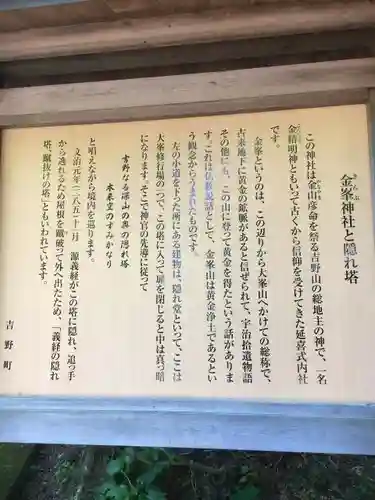 きんぷ
金峯神社と隠れ塔
この神社は金山彦命を祭る吉野山の総地主の神で、一名
金精明神ともいって古くから信仰を受けてきた延喜式内社
です。
金峯というのは、この辺りから大峯山へかけての総称で、
古来地下に黄金の鉱脈があると信ぜられて、宇治拾遺物語
その他にも、この山に登って黄金を得たという話がありま
す。これは仏教説話として、金峯山は黄金浄土であるとい
う観念からうまれたものです。
左の小道を下った所にある建物は、隠れ堂といって、ここは
大峯修行場の一つで、この塔に入って扉を閉じると中は真っ暗
になります。そこで神官の先導に従って
吉野なる深山の奥の隠れ塔
本来空のすみかなり
と唱えながら境内を巡ります。
文治元年(一一八五)十一月 源義経がこの塔に隠れ、追っ手
から逃れるため屋根を蹴破って外へ出たため、「義経の隠れ
塔、蹴抜けの塔」ともいわれています。
吉野町